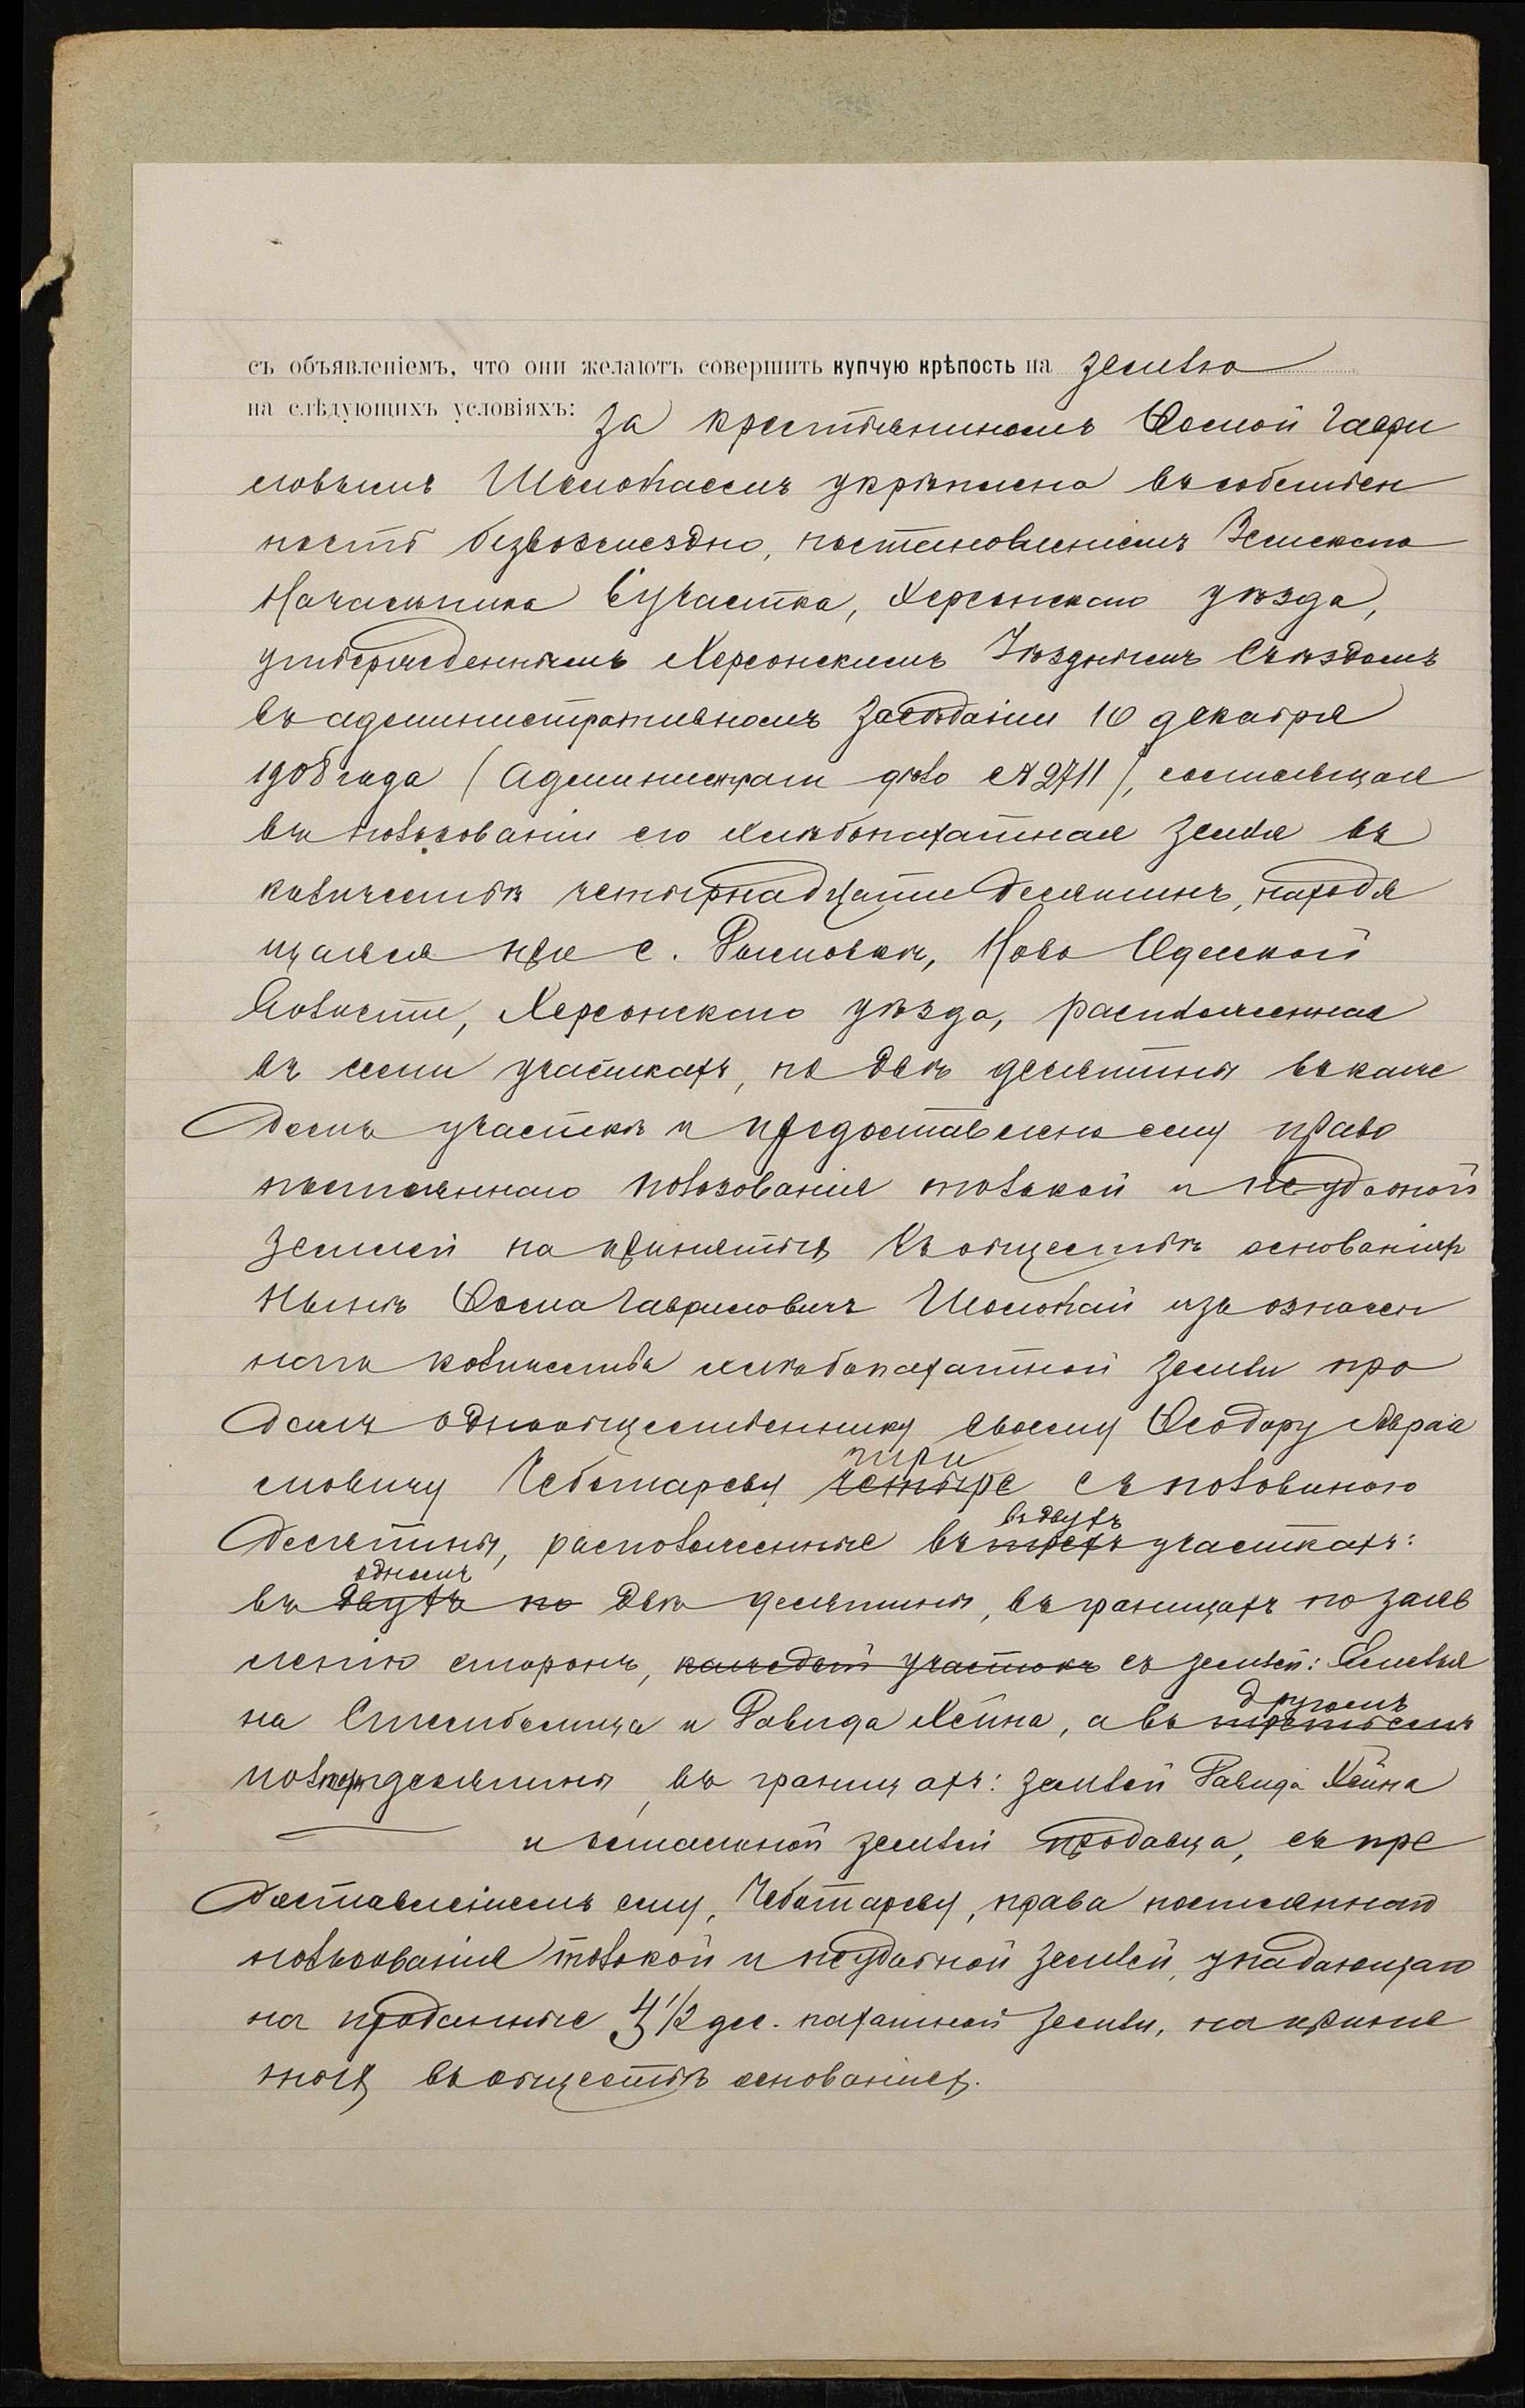 съ объявленіемъ, что они желаютъ совершить купчую крѣпость на землю
на слѣдующихъ условіяхъ: За крестьяниномъ Ѳомой Гаври
ловымъ Шелопаемъ укрѣплена въ собствен
ность безвозмездно, постановленіемъ Земскаго
Начальника 6 участка, Херсонскаго уѣзда,
утвержденнымъ Херсонскимъ Уѣзднымъ Съѣздомъ
въ административномъ засѣданіи 10 декабря
1908 года (Администрат дѣло № 2711), состоящая
въ пользованіи его хлѣбопахатная земля въ
количествѣ четырнадцати десятинъ, находя
щаяся при с. Ново Одесской
Волости, Херсонскаго уѣзда, расположенная
въ семи участкахъ, по двѣ десятины въ каж
домъ участкѣ и предоставлено ему право
постояннаго пользованія толокой и неудобной
землей на принятыхъ въ обществѣ основаніяхъ
Нынѣ Ѳома Гавриловичъ Шелопай изъ означен
наго количества хлѣбопахатной земли про
далъ однообщественнику своему Ѳеодору Авраа
мовичу Чеботареву четыре съ половиною
три
десятины, расположенные въ трехъ участкахъ:
въ двухъ
въ двухъ по двѣ десятины, въ границахъ по заяв
одномъ
ленію сторонъ, каждый участокъ съ землей:
на и Давида Хейна, а въ третьемъ
другомъ
десятины, въ границахъ: землей Давида Хейна
и остальной землей продавца, съ пре
доставленіемъ ему, Чеботареву, права постояннаго
пользованія толокой и неудобной землей, упадающаго
на проданные 3 1/2 дес. пахатной земли, на приня
тыхъ въ обществѣ основаніяхъ.